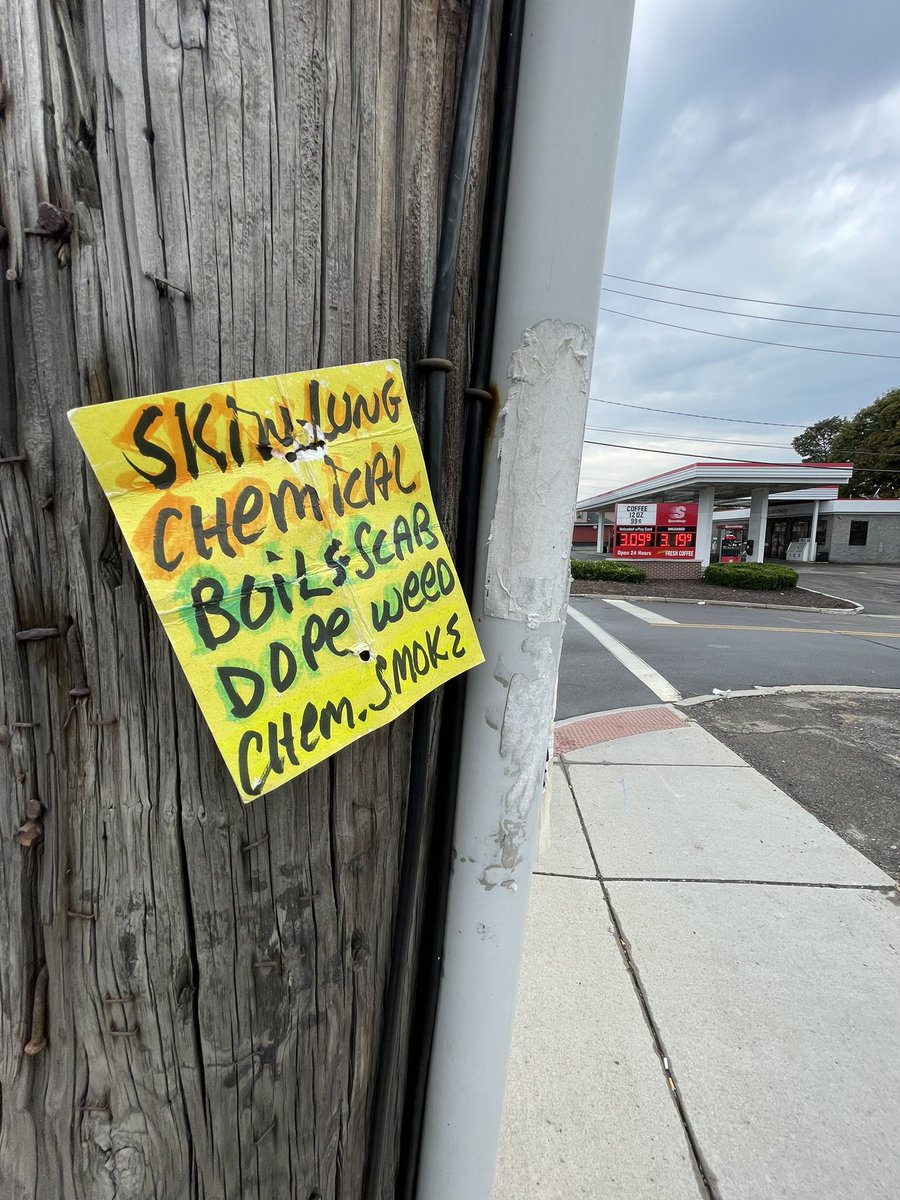 SKIN-LUNG
CHEMICAL
BOILS-SCAB
DOPE WEED
CHEM. SMOKE
COFFEE
12 OZ
99¢
Speedway
UNLEADED
3.09 9
3.19 9
Open 24 Hours
FRESH COFFEE